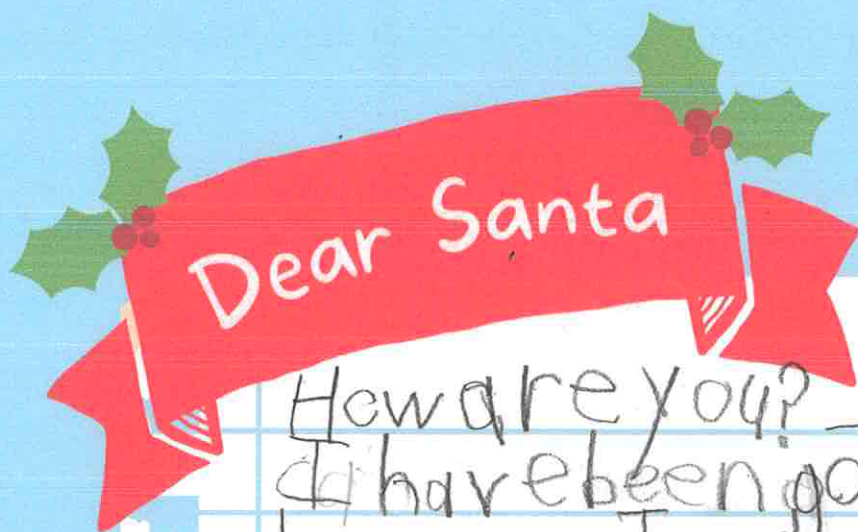 Dear Santa
How are you?
I have been